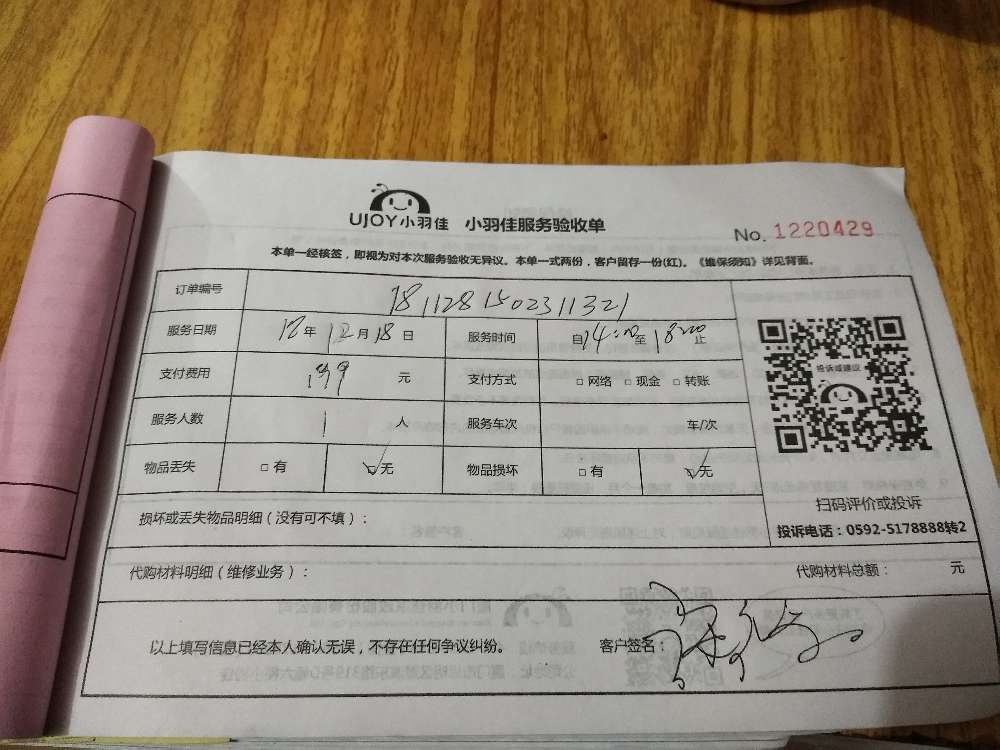 UJOY小羽佳 小羽佳服务验收单
No. 1220429
本单一经核签，即视为对本次服务验收无异议。本单一式两份，客户留存一份(红)。《维保须知》详见背面。
订单编号 181128150231321
服务日期 18年 12月18日 服务时间 自14:00至18:00止
支付费用 元 支付方式 □网络 □现金 □转账
服务人数 1 人 服务车次 车/次
物品丢失 □有 ☑无 物品损坏 □有 ☑无
投诉或建议
扫码评价或投诉
投诉电话：0592-5178888转2
损坏或丢失物品明细（没有可不填）：
代购材料明细（维修业务）： 代购材料总额： 元
以上填写信息已经本人确认无误，不存在任何争议纠纷。 客户签名：